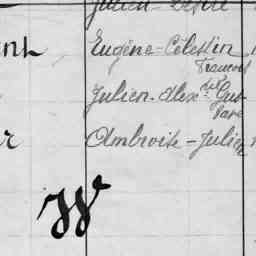 Julien-Désiré
ent Eugène-Célestin
François
Julien-Alex dit Gus
tave
r Ambroise-Julien
W